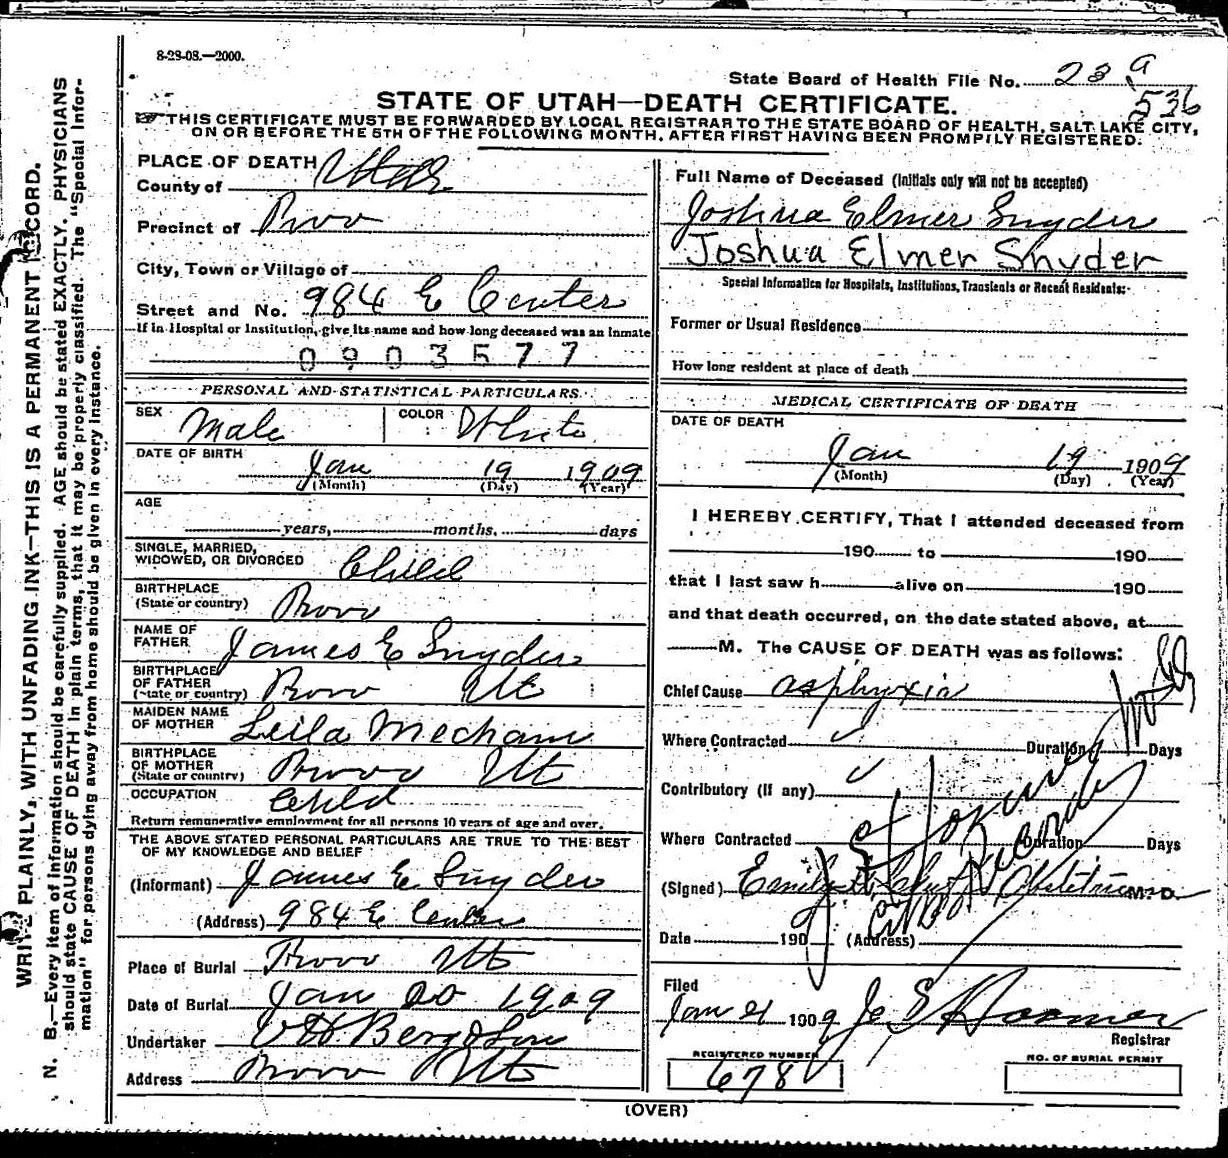 8-28-08.—2000.
State Board of Health File No. 23 a
536
STATE OF UTAH—DEATH CERTIFICATE.
THIS CERTIFICATE MUST BE FORWARDED BY LOCAL REGISTRAR TO THE STATE BOARD OF HEALTH, SALT LAKE CITY,
ON OR BEFORE THE 5TH OF THE FOLLOWING MONTH, AFTER FIRST HAVING BEEN PROMPILY REGISTERED.
WRITE PLAINLY, WITH UNFADING INK—THIS IS A PERMANENT RECORD.
N. B.—Every item of information should be carefully supplied. AGE should be stated EXACTLY. PHYSICIANS
should state CAUSE OF DEATH in plain terms, that it may be properly classified. The "Special Infor-
mation" for persons dying away from home should be given in every instance.
PLACE OF DEATH
County of Utah
Precinct of Provo
City, Town or Village of
Street and No. 984 E Center
If in Hospital or Institution, give its name and how long deceased was an inmate
0903577
PERSONAL AND STATISTICAL PARTICULARS
SEX Male COLOR White
DATE OF BIRTH Jan 19 1909
(Month) (Day) (Year)
AGE
years, months, days
SINGLE, MARRIED,
WIDOWED, OR DIVORCED Child
BIRTHPLACE
(State or country) Provo
NAME OF
FATHER James E Snyder
BIRTHPLACE
OF FATHER
(State or country) Provo Ut
MAIDEN NAME
OF MOTHER Leila Mecham
BIRTHPLACE
OF MOTHER
(State or country) Provo Ut
OCCUPATION Child
Return remunerative employment for all persons 10 years of age and over.
THE ABOVE STATED PERSONAL PARTICULARS ARE TRUE TO THE BEST
OF MY KNOWLEDGE AND BELIEF
(Informant) James E Snyder
(Address) 984 E Center
Place of Burial Provo Ut
Date of Burial Jan 20 1909
Undertaker O H Berg & Son
Address Provo Ut
Full Name of Deceased (Initials only will not be accepted)
Joshua Elmer Snyder
Joshua Elmer Snyder
Special Information for Hospitals, Institutions, Transients or Recent Residents:
Former or Usual Residence
How long resident at place of death
MEDICAL CERTIFICATE OF DEATH
DATE OF DEATH
Jan 19 1909
(Month) (Day) (Year)
I HEREBY CERTIFY, That I attended deceased from
190 to 190
that I last saw h alive on 190
and that death occurred, on the date stated above, at
M. The CAUSE OF DEATH was as follows:
Chief Cause asphyxia
Where Contracted Duration Days
Contributory (If any)
Where Contracted Duration Days
(Signed) Emily M.D.
Date 190 (Address)
Filed
Jan 21 1909
Registrar
REGISTERED NUMBER
678
NO. OF BURIAL PERMIT
(OVER)